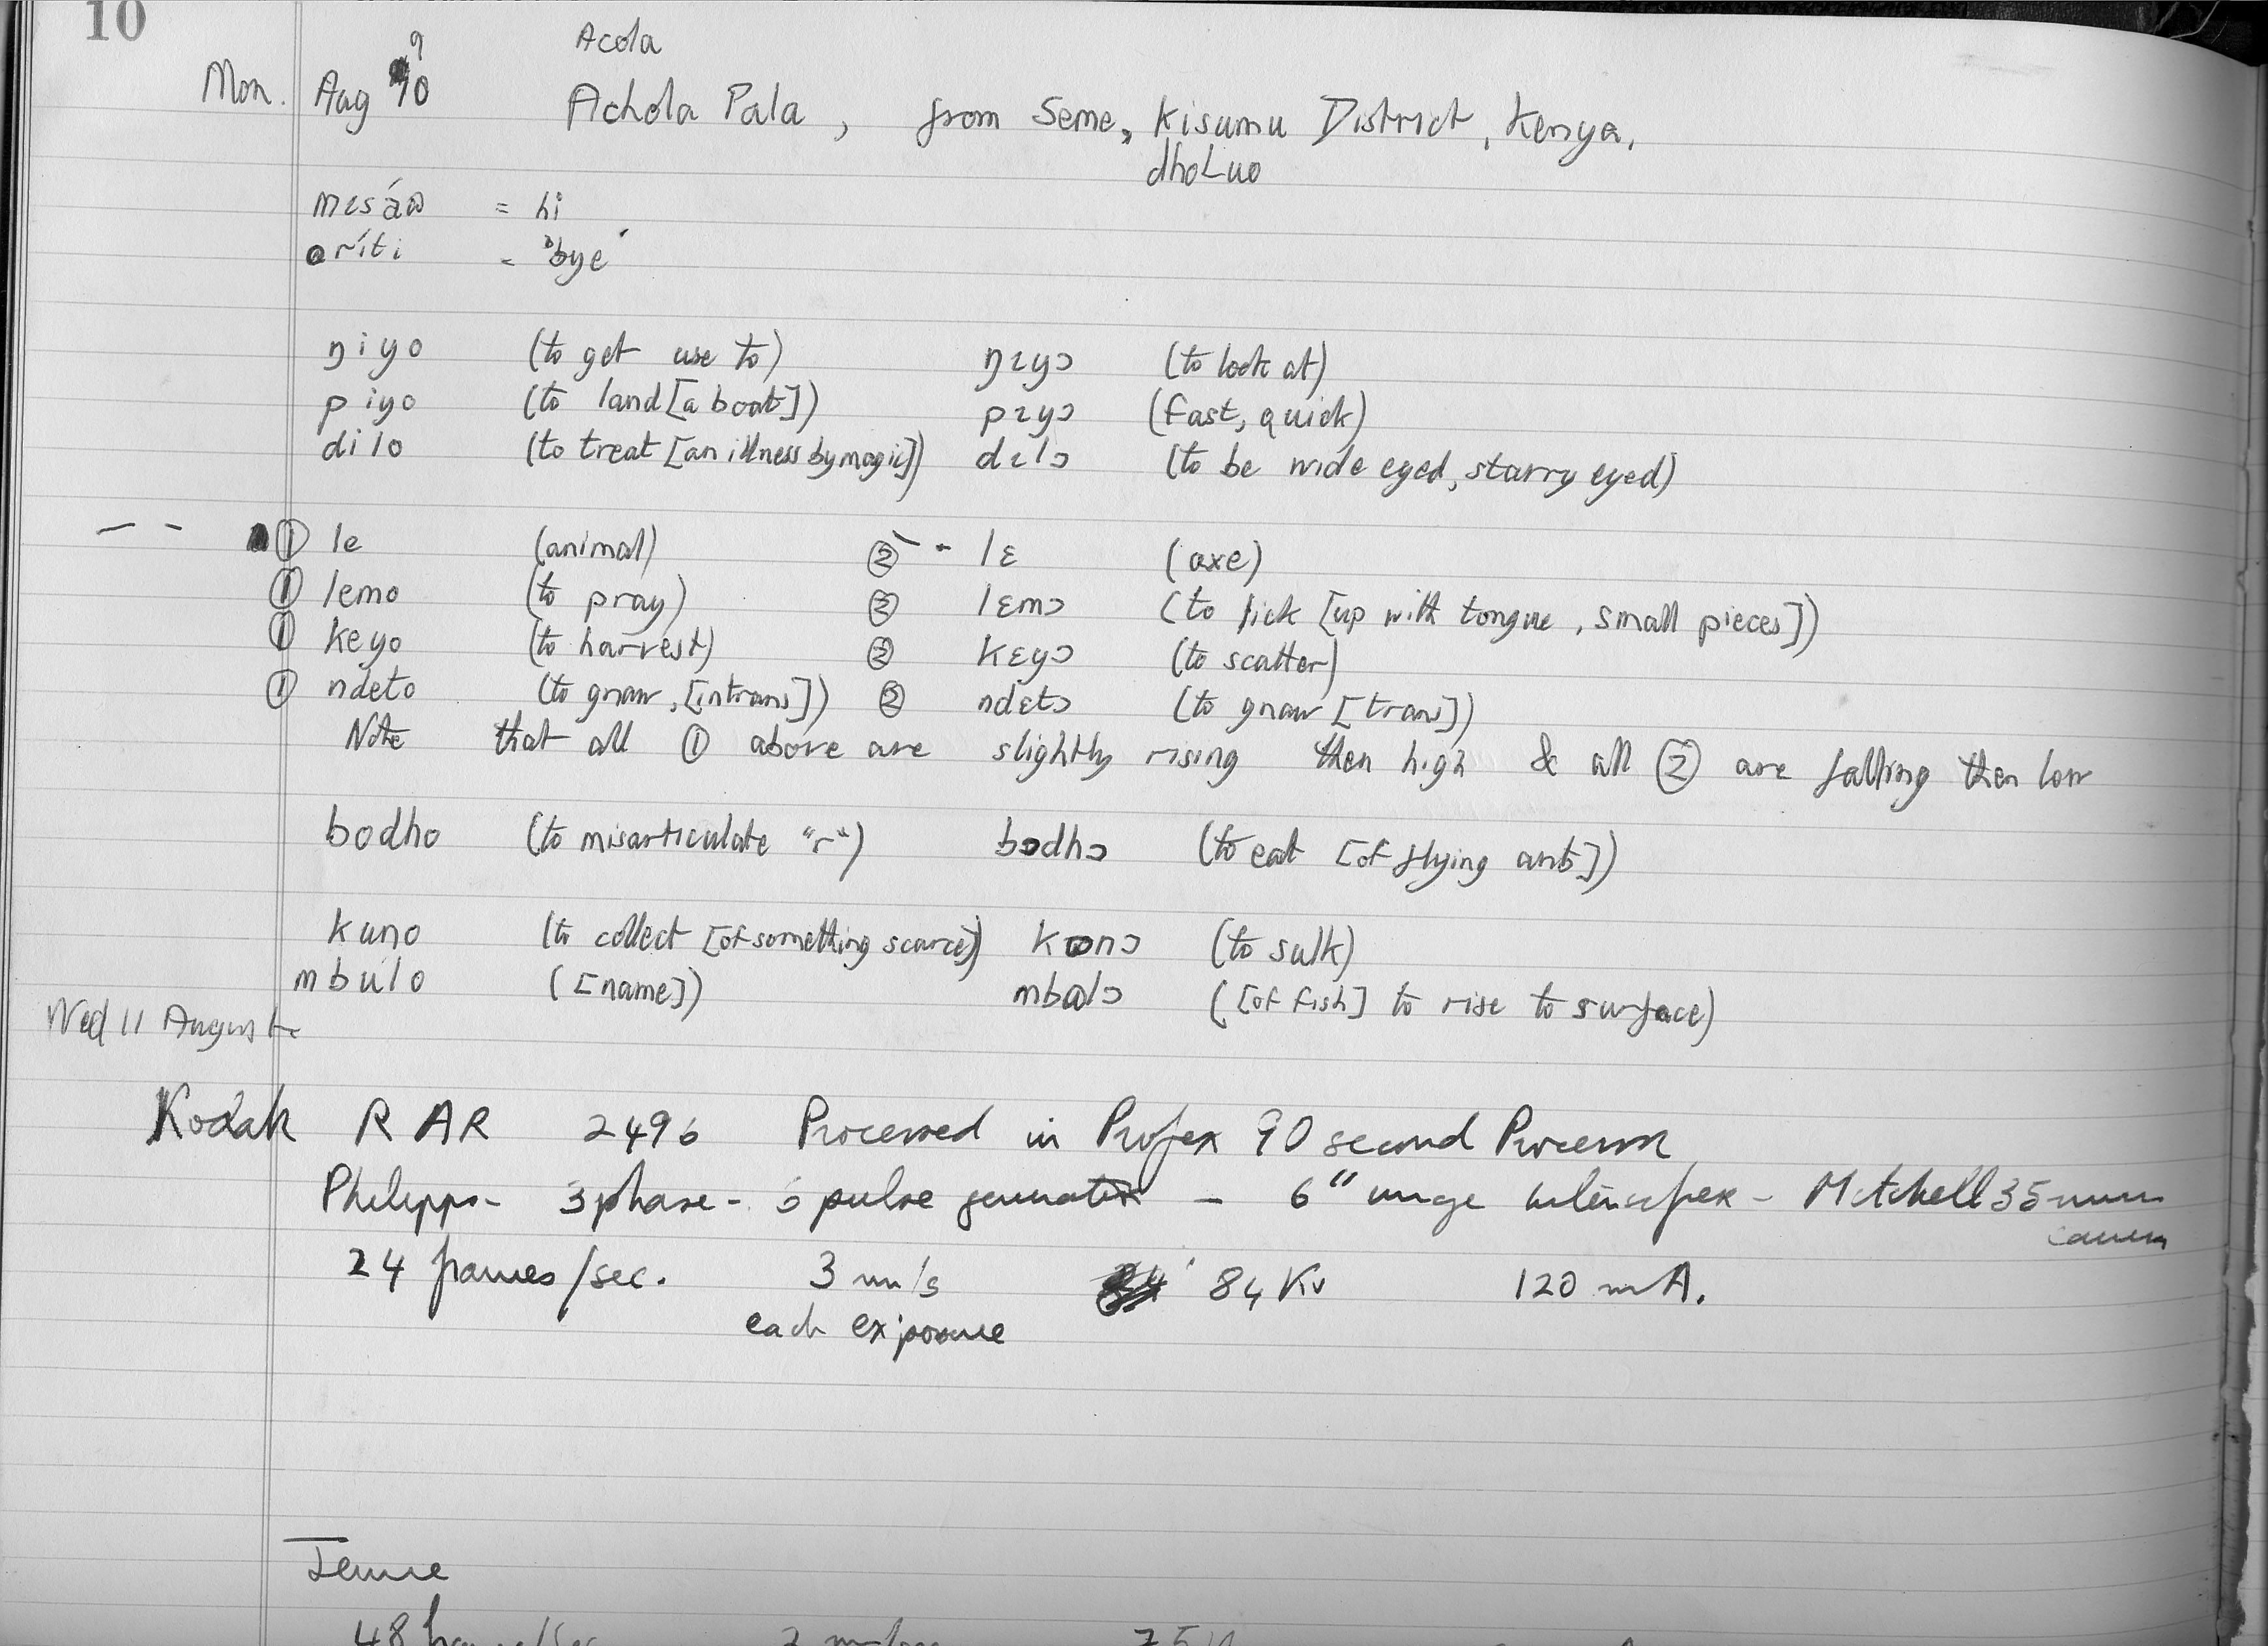 10
9 Acola
Mon. Aug 10 Achola Pala, from Seme, Kisumu District, Kenya,
dhoLuo
= hi
oríti = 'bye'
ŋiyo (to get use to) ŋɪyɔ (to look at)
piyo (to land [a boat]) pɪyɔ (fast, quick)
dilo (to treat [an illness by magic]) dɪlɔ (to be wide eyed, starry eyed)
① le (animal) ② lɛ (axe)
① lemo (to pray) ② lɛmɔ (to lick [up with tongue, small pieces])
① keyo (to harvest) ② kɛyɔ (to scatter)
① ndeto (to gnaw, [intrans]) ② ndɛtɔ (to gnaw [trans])
Note that all ① above are slightly rising then high & all ② are falling then low
bodho (to misarticulate "r") bɔdhɔ (to eat [of flying ants])
kuno (to collect [of something scarce]) kɷnɔ (to sulk)
mbulo ([name]) mbɷlɔ ([of fish] to rise to surface)
Wed 11 August
Kodak RAR 2496 Processed in Profex 90 second Processor
Philipps - 3 phase - 6 pulse generator - 6" image intensifier - Mitchell 35 mm
camera
24 frames/sec. 3 m/s 84 Kv 120 mA.
each exposure
48